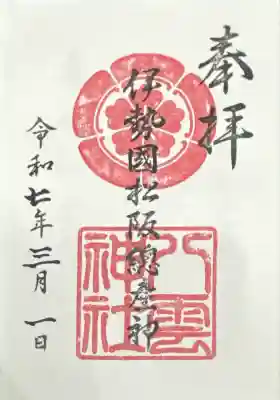 奉拝
伊勢國松阪總産神
八雲神社
令和七年三月一日